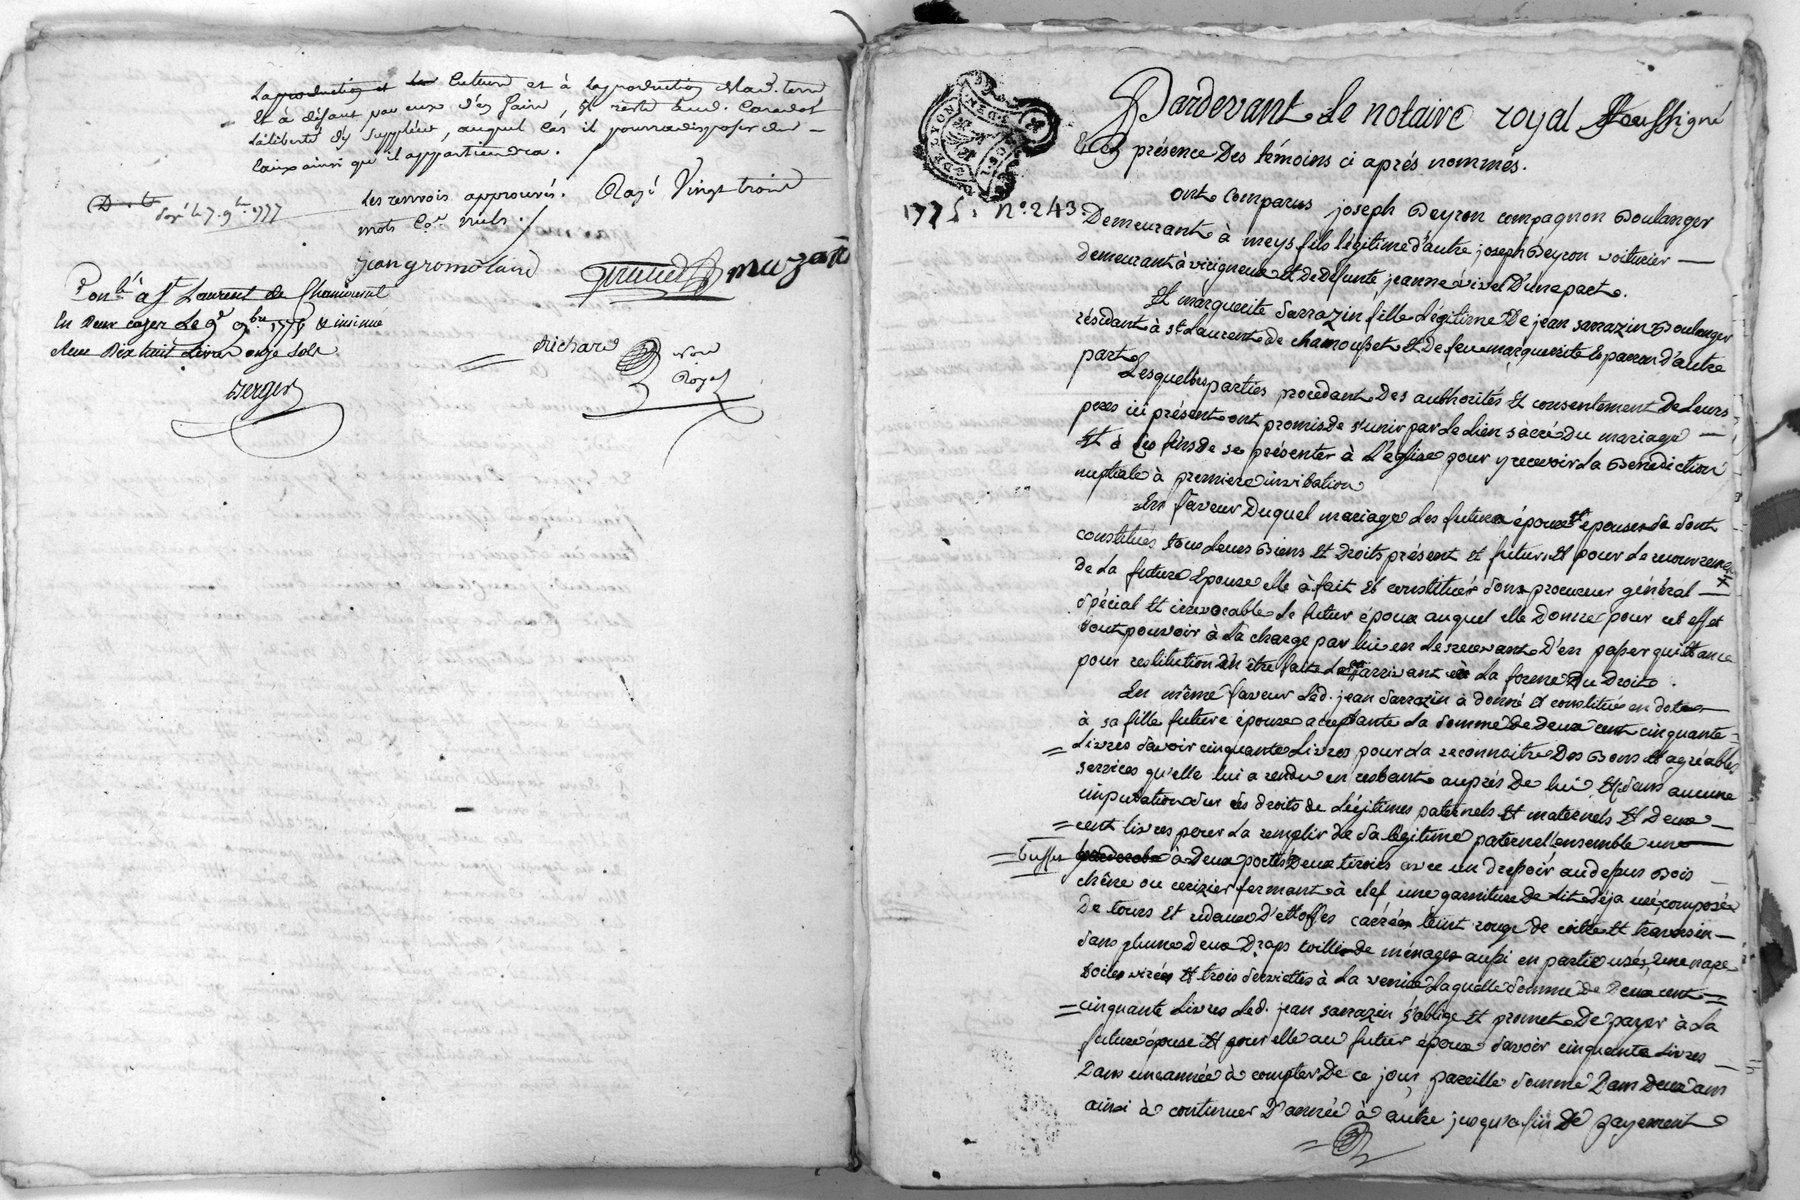 culture et à la production
et à défaut par eux d'en faire, il reste aud.
la liberté d'y suppléer, auquel cas il pourra disposer du
ainsi qu'il appartiendra.
Les renvois approuvés. Rayé Vingt trois
mots nuls.
jean gromolard
mazard
Richard
Con.lé à St Laurent de Chamousset
le 9e 9bre 1775 & insinué
Dix huit livres onze sols
Berger
DE LYON
Pardevant Le notaire royal Soussigné
Et En présence Des témoins ci aprés nommés.
1775. n°. 243.
ont comparus joseph Peyron compagnon Boulanger
Demeurant à meys fils légitime d'autre joseph Peyron voiturier
demeurant à virigneux Et De Défunte jeanne vivet D'une part.
Et marguerite Sarrazin fille Légitime De jean sarrazin Boulanger
résidant à St Laurent de chamousset Et de feue marguerite D'autre
part
Lesquelles parties procédant Des authorités Et consentement De Leurs
peres ici présent ont promis de s'unir par Le Lien sacré Du mariage
Et à ces fins de se présenter à L'église pour y recevoir La Benediction
nuptiale à premiere invitation
En faveur Duquel mariage Les futurs époux et épouse se sont
constitués tous Leurs Biens Et Droits présent et futurs Et pour Le recouvrement
De La future Epouse elle à fait Et constitué son procureur général
spécial Et irrevocable Le futur époux auquel elle Donne pour cet effet
tout pouvoir à La charge par lui en Le recevant D'en passer quittance
pour restitution En être faite Le cas arrivant à La forme Du Droit.
En même faveur Led. jean Sarrazin à donné Et constitué en dot
à sa fille future épouse acceptante La somme De Deux cent cinquante
Livres savoir cinquante Livres pour La reconnoitre Des Bons Et agréables
services qu'elle lui a rendu en restant auprés De lui Et sans aucune
imputation sur ses droits de Légitimes paternels Et maternels Et Deux
cent livres pour La remplir De sa légitime paternel ensemble une
buffet garderobe à Deux portes Deux tiroirs avec un dressoir au dessus Bois
chêne ou cerizier fermant à clef une garniture De Lit Déja usé, composée
De tours Et rideaux D'étoffes cadrées teint rouge De coitte Et traversin
sans plume Deux Draps toille De ménage aussi en partie usés, une nape
toile virée Et trois serviettes à La venise Laquelle somme De Deux cent
cinquante Livres Led. jean sarrazin s'oblige Et promet De payer à La
future épouse Et pour elle au futur époux savoir cinquante Livres
Dans une année à compter De ce jour, pareille somme Dans Deux ans
ainsi à continuer D'année à autre jusqu'a fin De payement